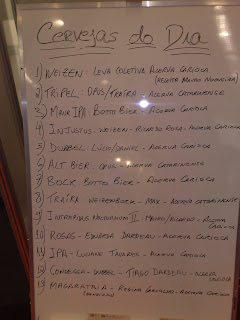 Cervejas do Dia
1) Weizen: Leva Coletiva Acerva Carioca
(Mauro Nogueira)
2) Tripel: Opus/Treira - Acerva Catarinense
3) IPA Botto Bier - Acerva Carioca
4) Injustus - Weizen - Ricardo Rosa - Acerva Carioca
5) Dubbel: Lúcio/Daniel - Acerva Carioca
6) Alt Bier: Opus - Acerva Catarinense
7) Bock: Botto Bier - Acerva Carioca
8) Treira Weizenbock - Max - Acerva Catarinense
9) Naturarum II - Mauro/Ricardo - Acerva Carioca
10) Rosas - Eduarda Dardeau - Acerva Carioca
11) IPA - Luciano Tavares - Acerva Carioca
12) Condessa - Dubbel - Tiago Dardeau - Acerva Carioca
13) - Regina Carvalho - Acerva Carioca